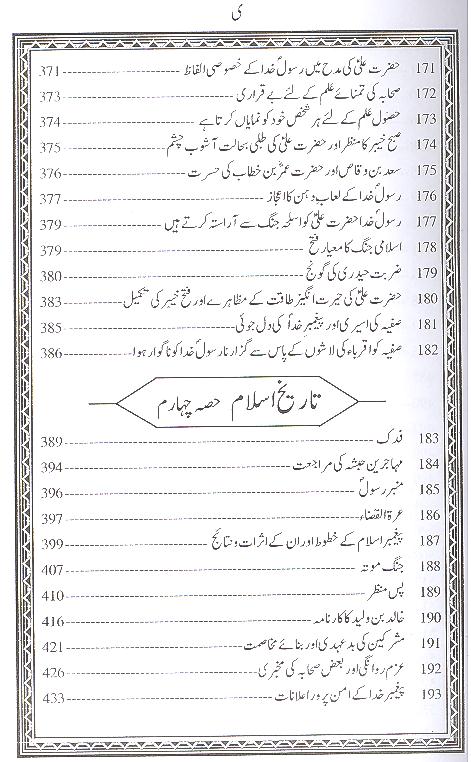 ی
171 حضرت علیؑ کی مدح میں رسولؐ خدا کے خصوصی الفاظ 371
172 صحابہ کی تمنائے علم کے لئے بے قراری 373
173 حصول علم کے لئے ہر شخص خود کو نمایاں کرتا ہے 374
174 صبح خیبر کا منظر اور حضرت علیؑ کی طلبی بحالت آشوب چشم 375
175 سعد بن وقاص اور حضرت عمرؓ بن خطاب کی حسرت 376
176 رسولؐ خدا کے لعاب دہن کا اعجاز 377
177 رسولؐ خدا حضرت علیؑ کو اسلحہ جنگ سے آراستہ کرتے ہیں 379
178 اسلامی جنگ کا معیار فتح 379
179 ضربت حیدری کی گونج 380
180 حضرت علیؑ کی حیرت انگیز طاقت کے مظاہرے اور فتح خیبر کی تکمیل 383
181 صفیہ کی اسیری اور پیغمبرؐ خدا کی دل جوئی 385
182 صفیہ کو اقرباء کی لاشوں کے پاس سے گزارنا رسولؐ خدا کو ناگوار ہوا 386
تاریخ اسلام حصہ چہارم
183 فدک 389
184 مہاجرین حبشہ کی مراجعت 394
185 منبر رسولؐ 396
186 عمرۃ القضاء 397
187 پیغمبرؐ اسلام کے خطوط اور ان کے اثرات و نتائج 399
188 جنگ موتہ 407
189 پس منظر 410
190 خالد بن ولید کا کارنامہ 416
191 مشرکین کی بدعہدی اور بنائے مخاصمت 421
192 عزم روانگی اور بعض صحابہ کی مخبری 426
193 پیغمبرؐ خدا کے امن پرور اعلانات 433